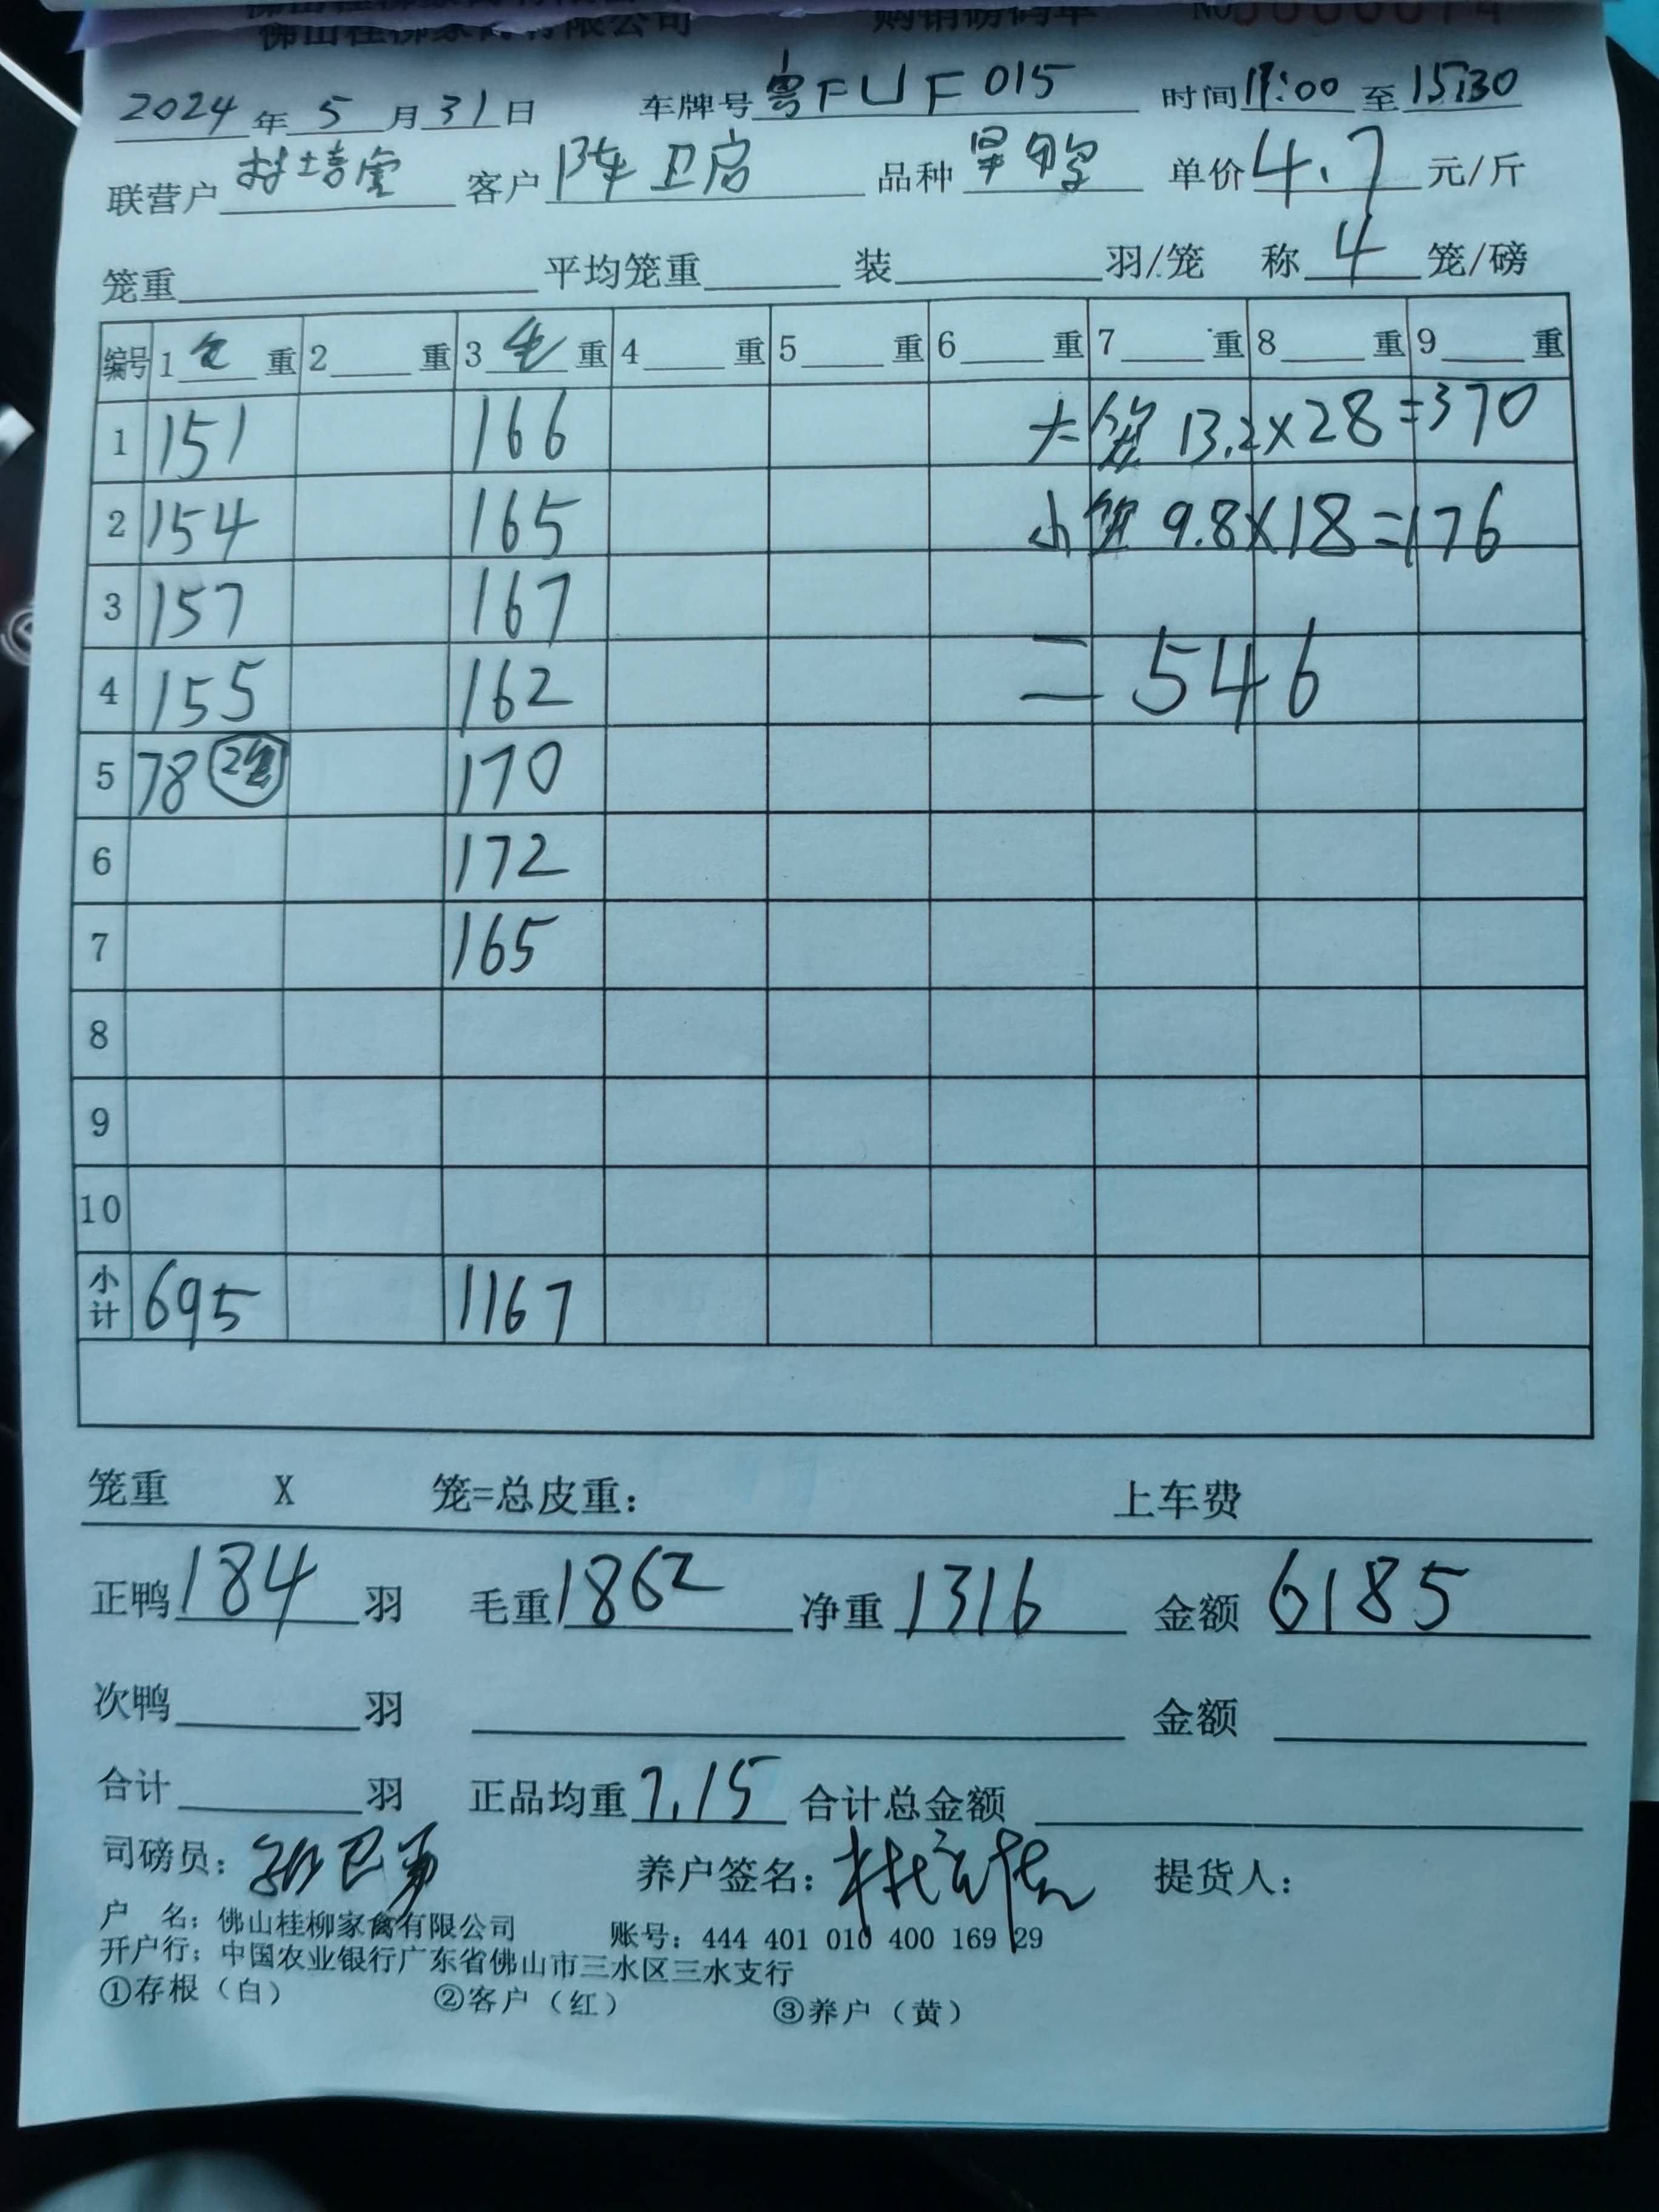 佛山桂柳家禽有限公司 购销磅码单 NO 0000074
2024年5月31日 车牌号 粤FUF015 时间 11:00 至 15:30
联营户 客户 陈卫启 品种 单价 4.7 元/斤
笼重 平均笼重 装 羽/笼 称 4 笼/磅
编号 1 重 2 重 3 毛 重 4 重 5 重 6 重 7 重 8 重 9 重
1 151 166 大笼 13.2×28=370
2 154 165 小笼 9.8×18=176
3 157 167
4 155 162 =546
5 78 170
6 172
7 165
8
9
10
小计 695 1167
笼重 X 笼=总皮重: 上车费
正鸭 184 羽 毛重 1862 净重 1316 金额 6185
次鸭 羽 金额
合计 羽 正品均重 7.15 合计总金额
司磅员: 养户签名: 提货人:
户 名: 佛山桂柳家禽有限公司 账号: 444 401 010 400 169 29
开户行: 中国农业银行广东省佛山市三水区三水支行
①存根(白) ②客户(红) ③养户(黄)